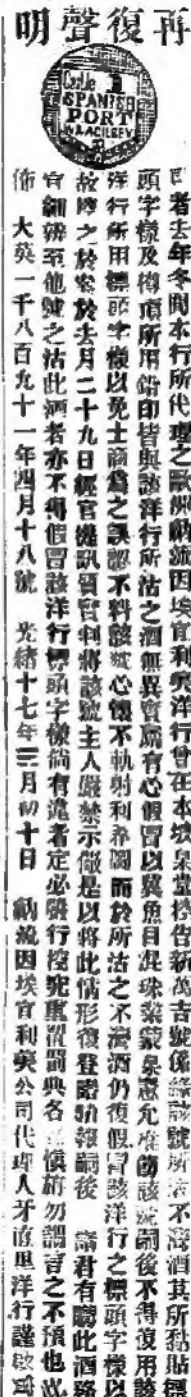 再復聲明
Castle
SPANISH
PORT
W&A GILBEY
啟者去年冬間本行所代理之歐洲納流因埃官利英洋行曾在本坡臬堂控告新萬吉號係緣該號所沽不濟酒其所黏貼標
頭字樣及樽頂所用鉛印皆與該洋行所沽之酒無異實屬有心假冒以異魚目混珠案蒙臬憲允准飭該號嗣後不得復用該
洋行所用標頭字樣以免士商為之誤認不料該號心懷不軌射利希圖而於所沽之不濟酒仍復假冒該洋行之標頭字樣以
故控之於案於去月二十九日經官提訊質實判將該號主人嚴禁示儆是以將此情形復登諸貽報嗣後 諸君有購此酒務
宜細辨至他號之沽此酒者亦不得假冒該洋行標頭字樣倘有違者定必發行控究重從罰典各宜慎旃勿謂言之不預也此
佈 大英一千八百九十一年四月十八號 光緒十七年三月初十日 納流因埃官利英公司代理人牙直里洋行謹啟